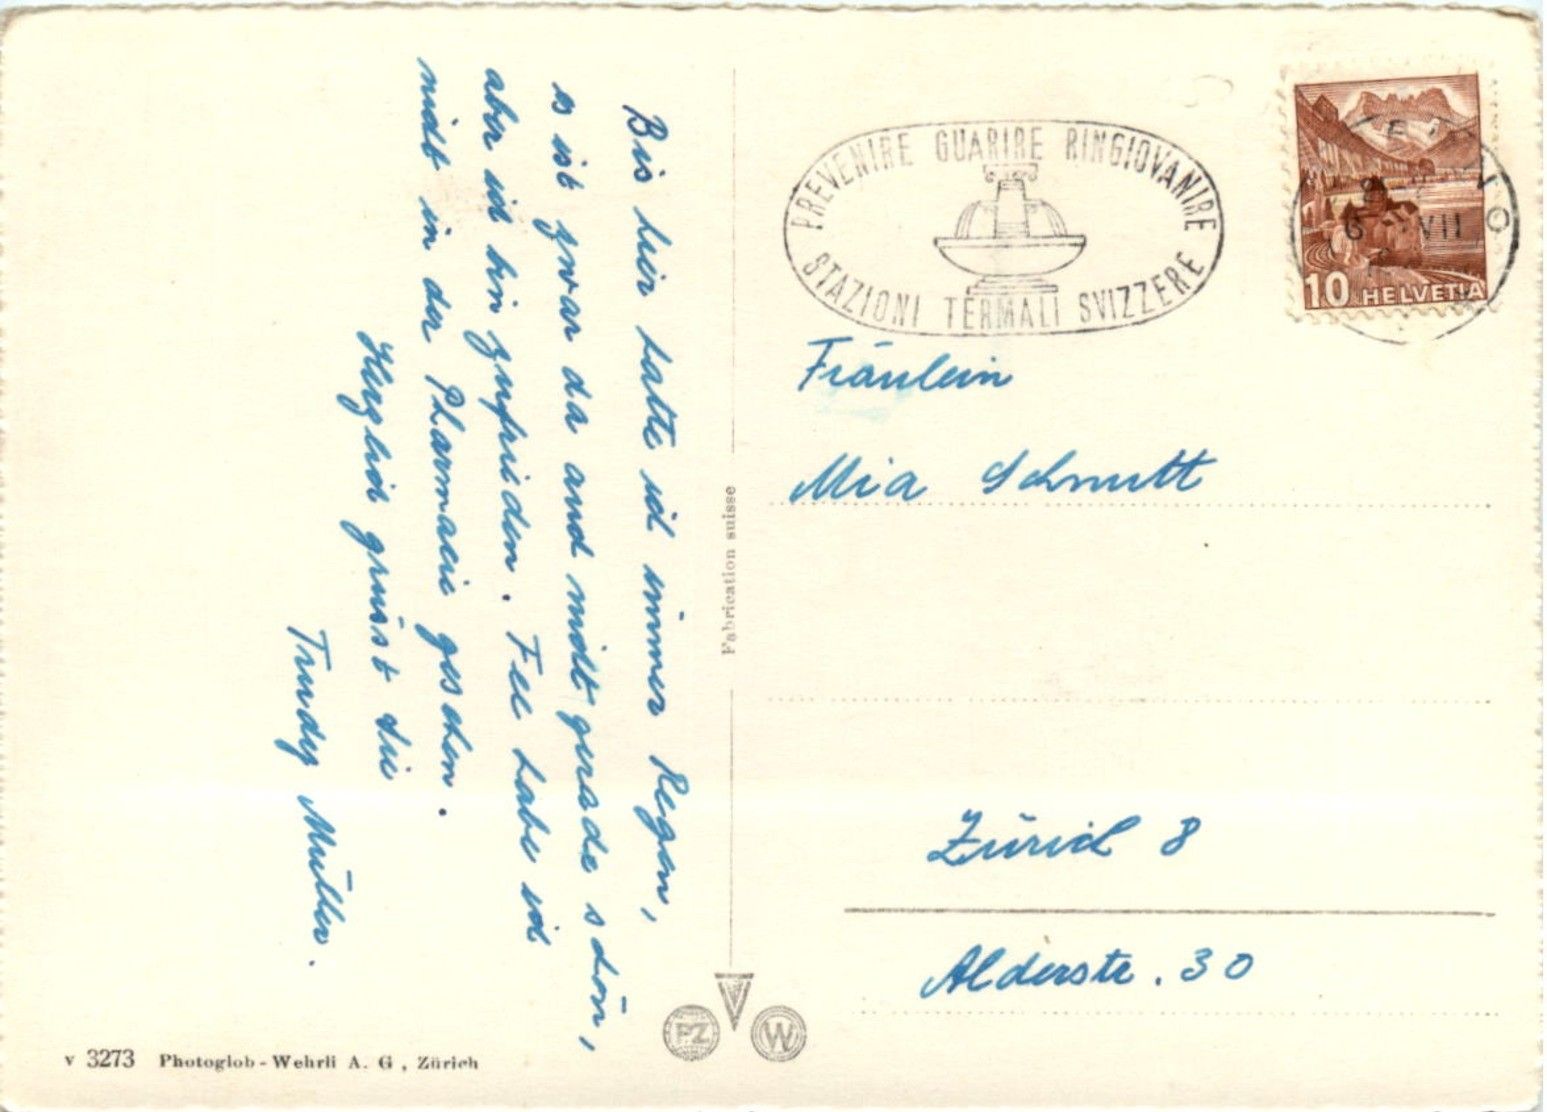 Bis hier hatte ich immer Regen,
es ist zwar da auch nicht gerade schön,
aber ich bin zufrieden. Fee habe ich
nicht in der Pharmacie gesehen.
Herzlich grüsst die
Trudy Müller.
PREVENIRE GUARIRE RINGIOVANIRE
STAZIONI TERMALI SVIZZERE
10 HELVETIA
VII
Fräulein
Mia Schmutt
Zürich 8
Alderstr. 30
Fabrication suisse
PZ
W
v 3273 Photoglob-Wehrli A. G., Zürich